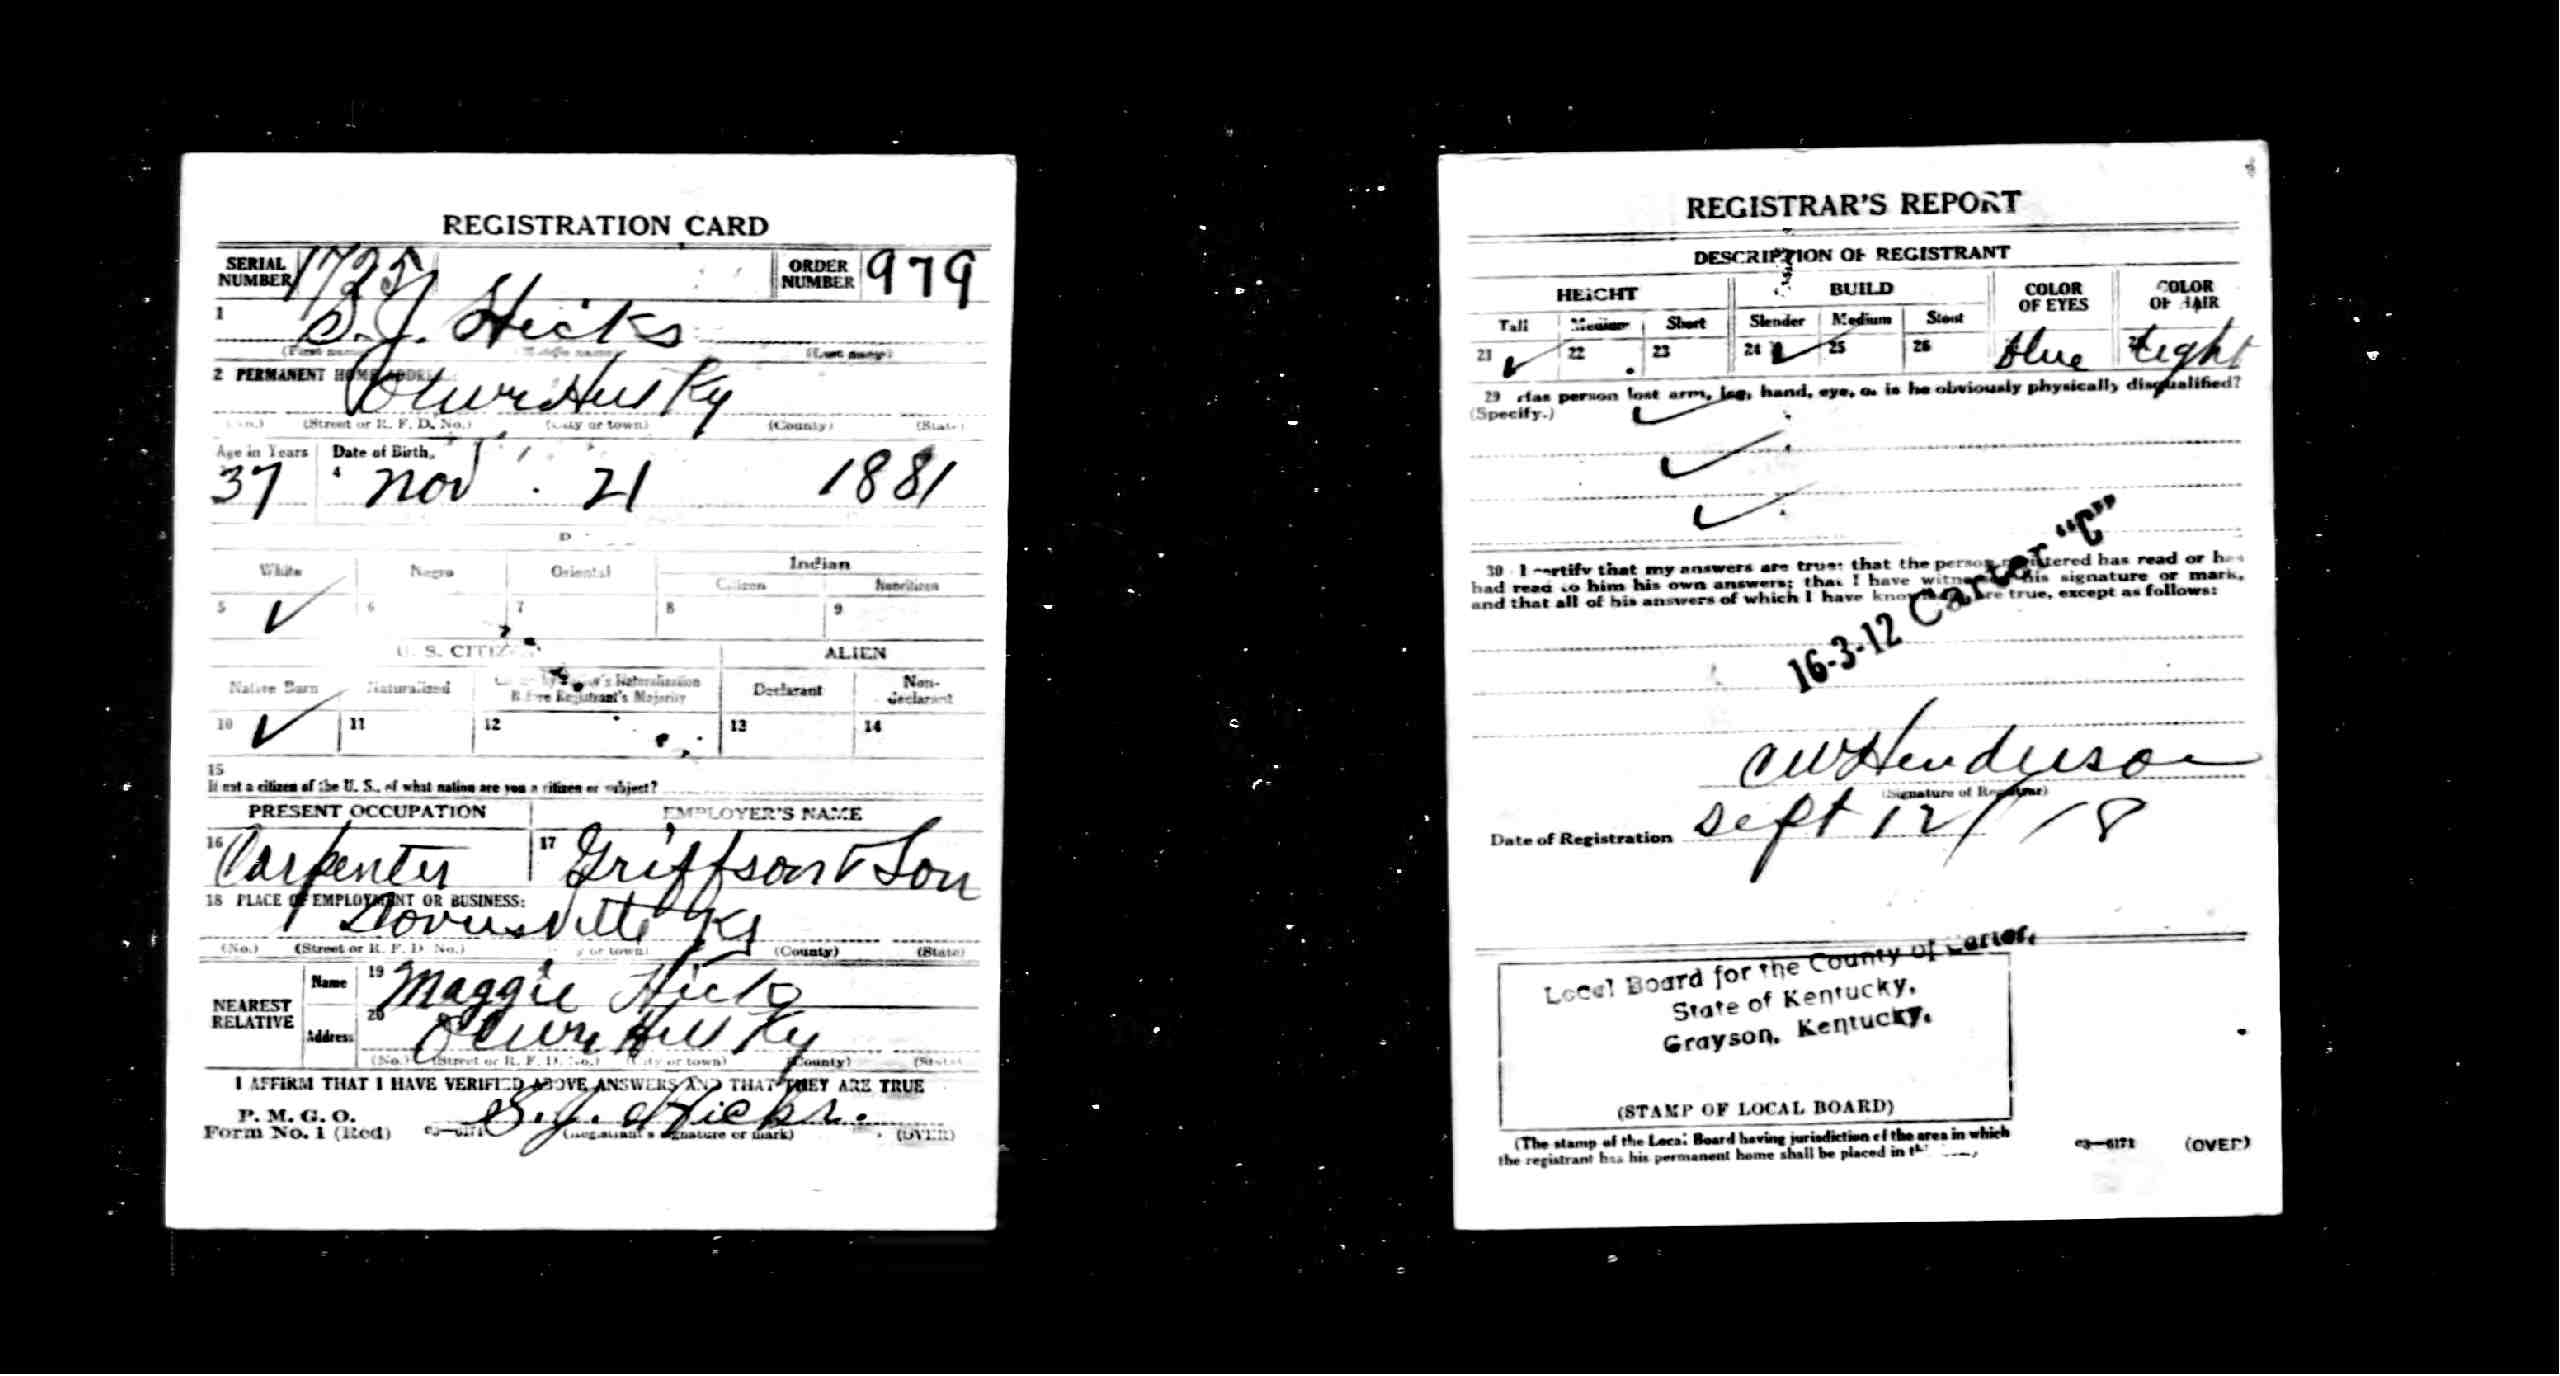 REGISTRATION CARD
SERIAL NUMBER 1725 ORDER NUMBER 979
1 S. J. Hicks
(First name) (Middle name) (Last name)
2 PERMANENT HOME ADDRESS:
Olive Hill Ky
(No.) (Street or R. F. D. No.) (City or town) (County) (State)
Age in Years Date of Birth
37 4 Nov 21 1881
White Negro Oriental Indian
Citizen Noncitizen
5 ✓ 6 7 8 9
U. S. CITIZEN ALIEN
Native Born Naturalized Citizen by Father's Naturalization Before Registrant's Majority Declarant Non-declarant
10 ✓ 11 12 13 14
15
If not a citizen of the U. S., of what nation are you a citizen or subject?
PRESENT OCCUPATION EMPLOYER'S NAME
16 Carpenter 17 Griffson & Son
18 PLACE OF EMPLOYMENT OR BUSINESS:
Ky
(No.) (Street or R. F. D. No.) (City or town) (County) (State)
NEAREST RELATIVE
Name 19 Maggie Hicks
Address 20 Olive Hill Ky
(No.) (Street or R. F. D. No.) (City or town) (County) (State)
I AFFIRM THAT I HAVE VERIFIED ABOVE ANSWERS AND THAT THEY ARE TRUE
P. M. G. O.
Form No. 1 (Red) 03—6171 S. J. Hicks.
(Registrant's signature or mark) (OVER)
REGISTRAR'S REPORT
DESCRIPTION OF REGISTRANT
HEIGHT BUILD COLOR OF EYES COLOR OF HAIR
Tall Medium Short Slender Medium Stout
21 ✓ 22 23 24 ✓ 25 26 blue light
29 Has person lost arm, leg, hand, eye, or is he obviously physically disqualified?
(Specify.) ✓
✓
✓
30 I certify that my answers are true; that the person registered has read or has
had read to him his own answers; that I have witnessed his signature or mark,
and that all of his answers of which I have knowledge are true, except as follows:
16-3-12 Carter "C"
C W Henderson
(Signature of Registrar)
Date of Registration Sept 12/18
Local Board for the County of Carter,
State of Kentucky,
Grayson, Kentucky.
(STAMP OF LOCAL BOARD)
(The stamp of the Local Board having jurisdiction of the area in which
the registrant has his permanent home shall be placed in
03—6171 (OVER)